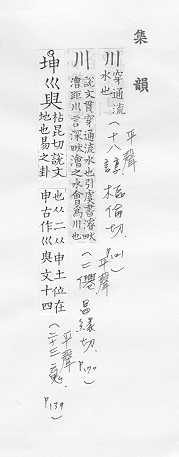 集韻
川穿通流
水也
平聲
(十八諄,樞倫切,
川說文貫穿通流水也引虞書濬畎
澮距川言深畎澮之水會爲川也
平聲
(二僊 昌緣切, P170)
坤巛與枯昆切說文
地也易之卦
也从土从申土位在
申古作巛與文十四
平聲
(二十三魂, P139)